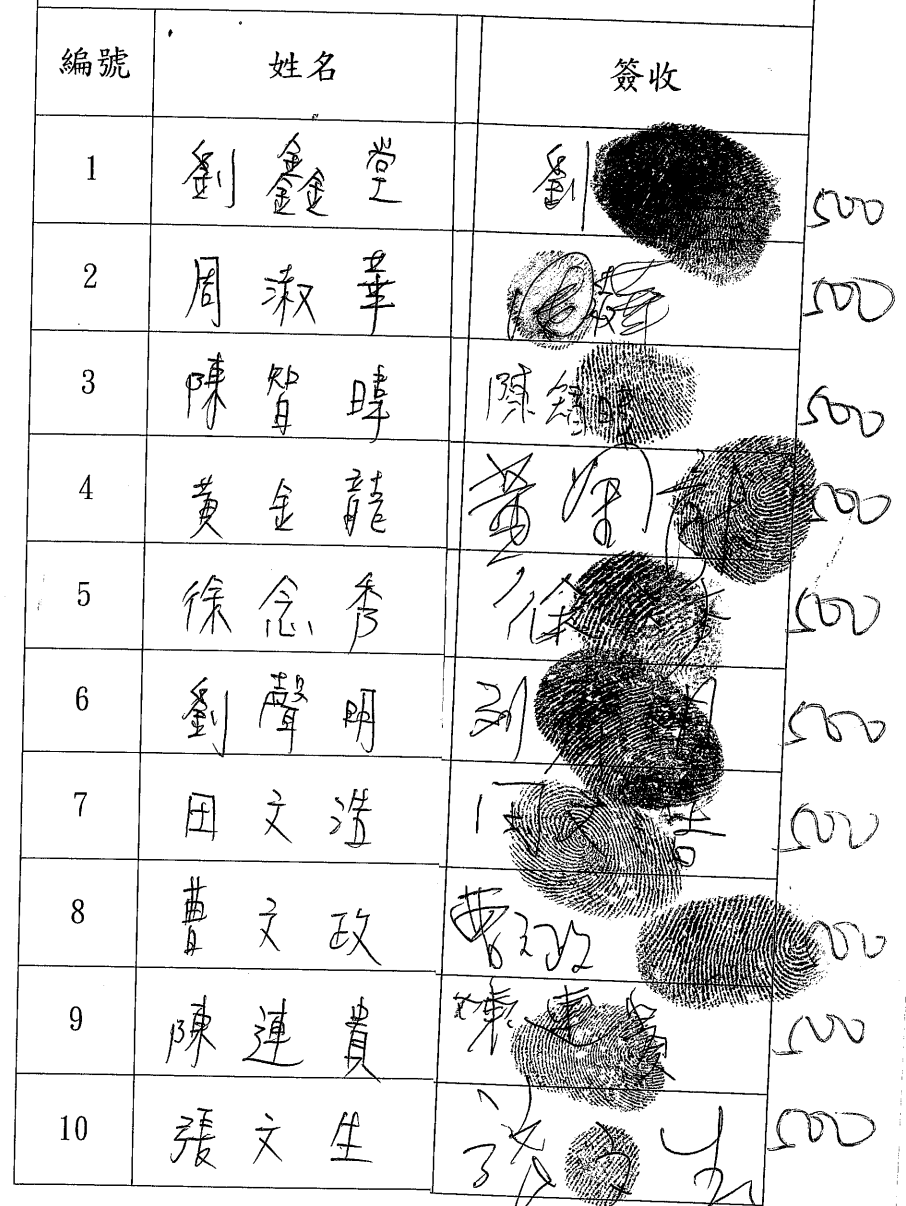 編號 姓名 簽收
1 劉鑫堂 劉 500
2 周淑華 500
3 陳智暐 陳智 500
4 黃金龍 黃 500
5 徐念秀 徐 500
6 劉聲明 刘 明 500
7 田文浩 500
8 曹文政 曹文政 500
9 陳連貴 陳連貴 500
10 張文生 張文生 500